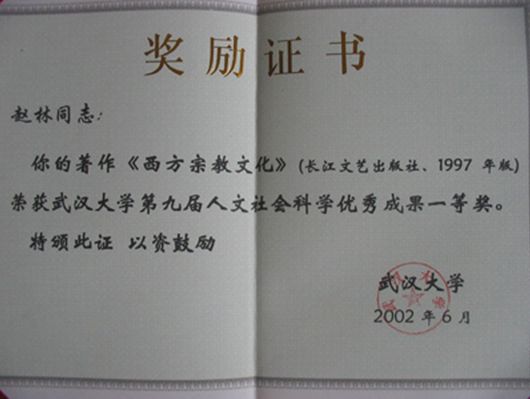 奖励证书
赵林同志:
你的著作《西方宗教文化》(长江文艺出版社、1997 年版)
荣获武汉大学第九届人文社会科学优秀成果一等奖。
特颁此证 以资鼓励
武汉大学
2002 年 6 月